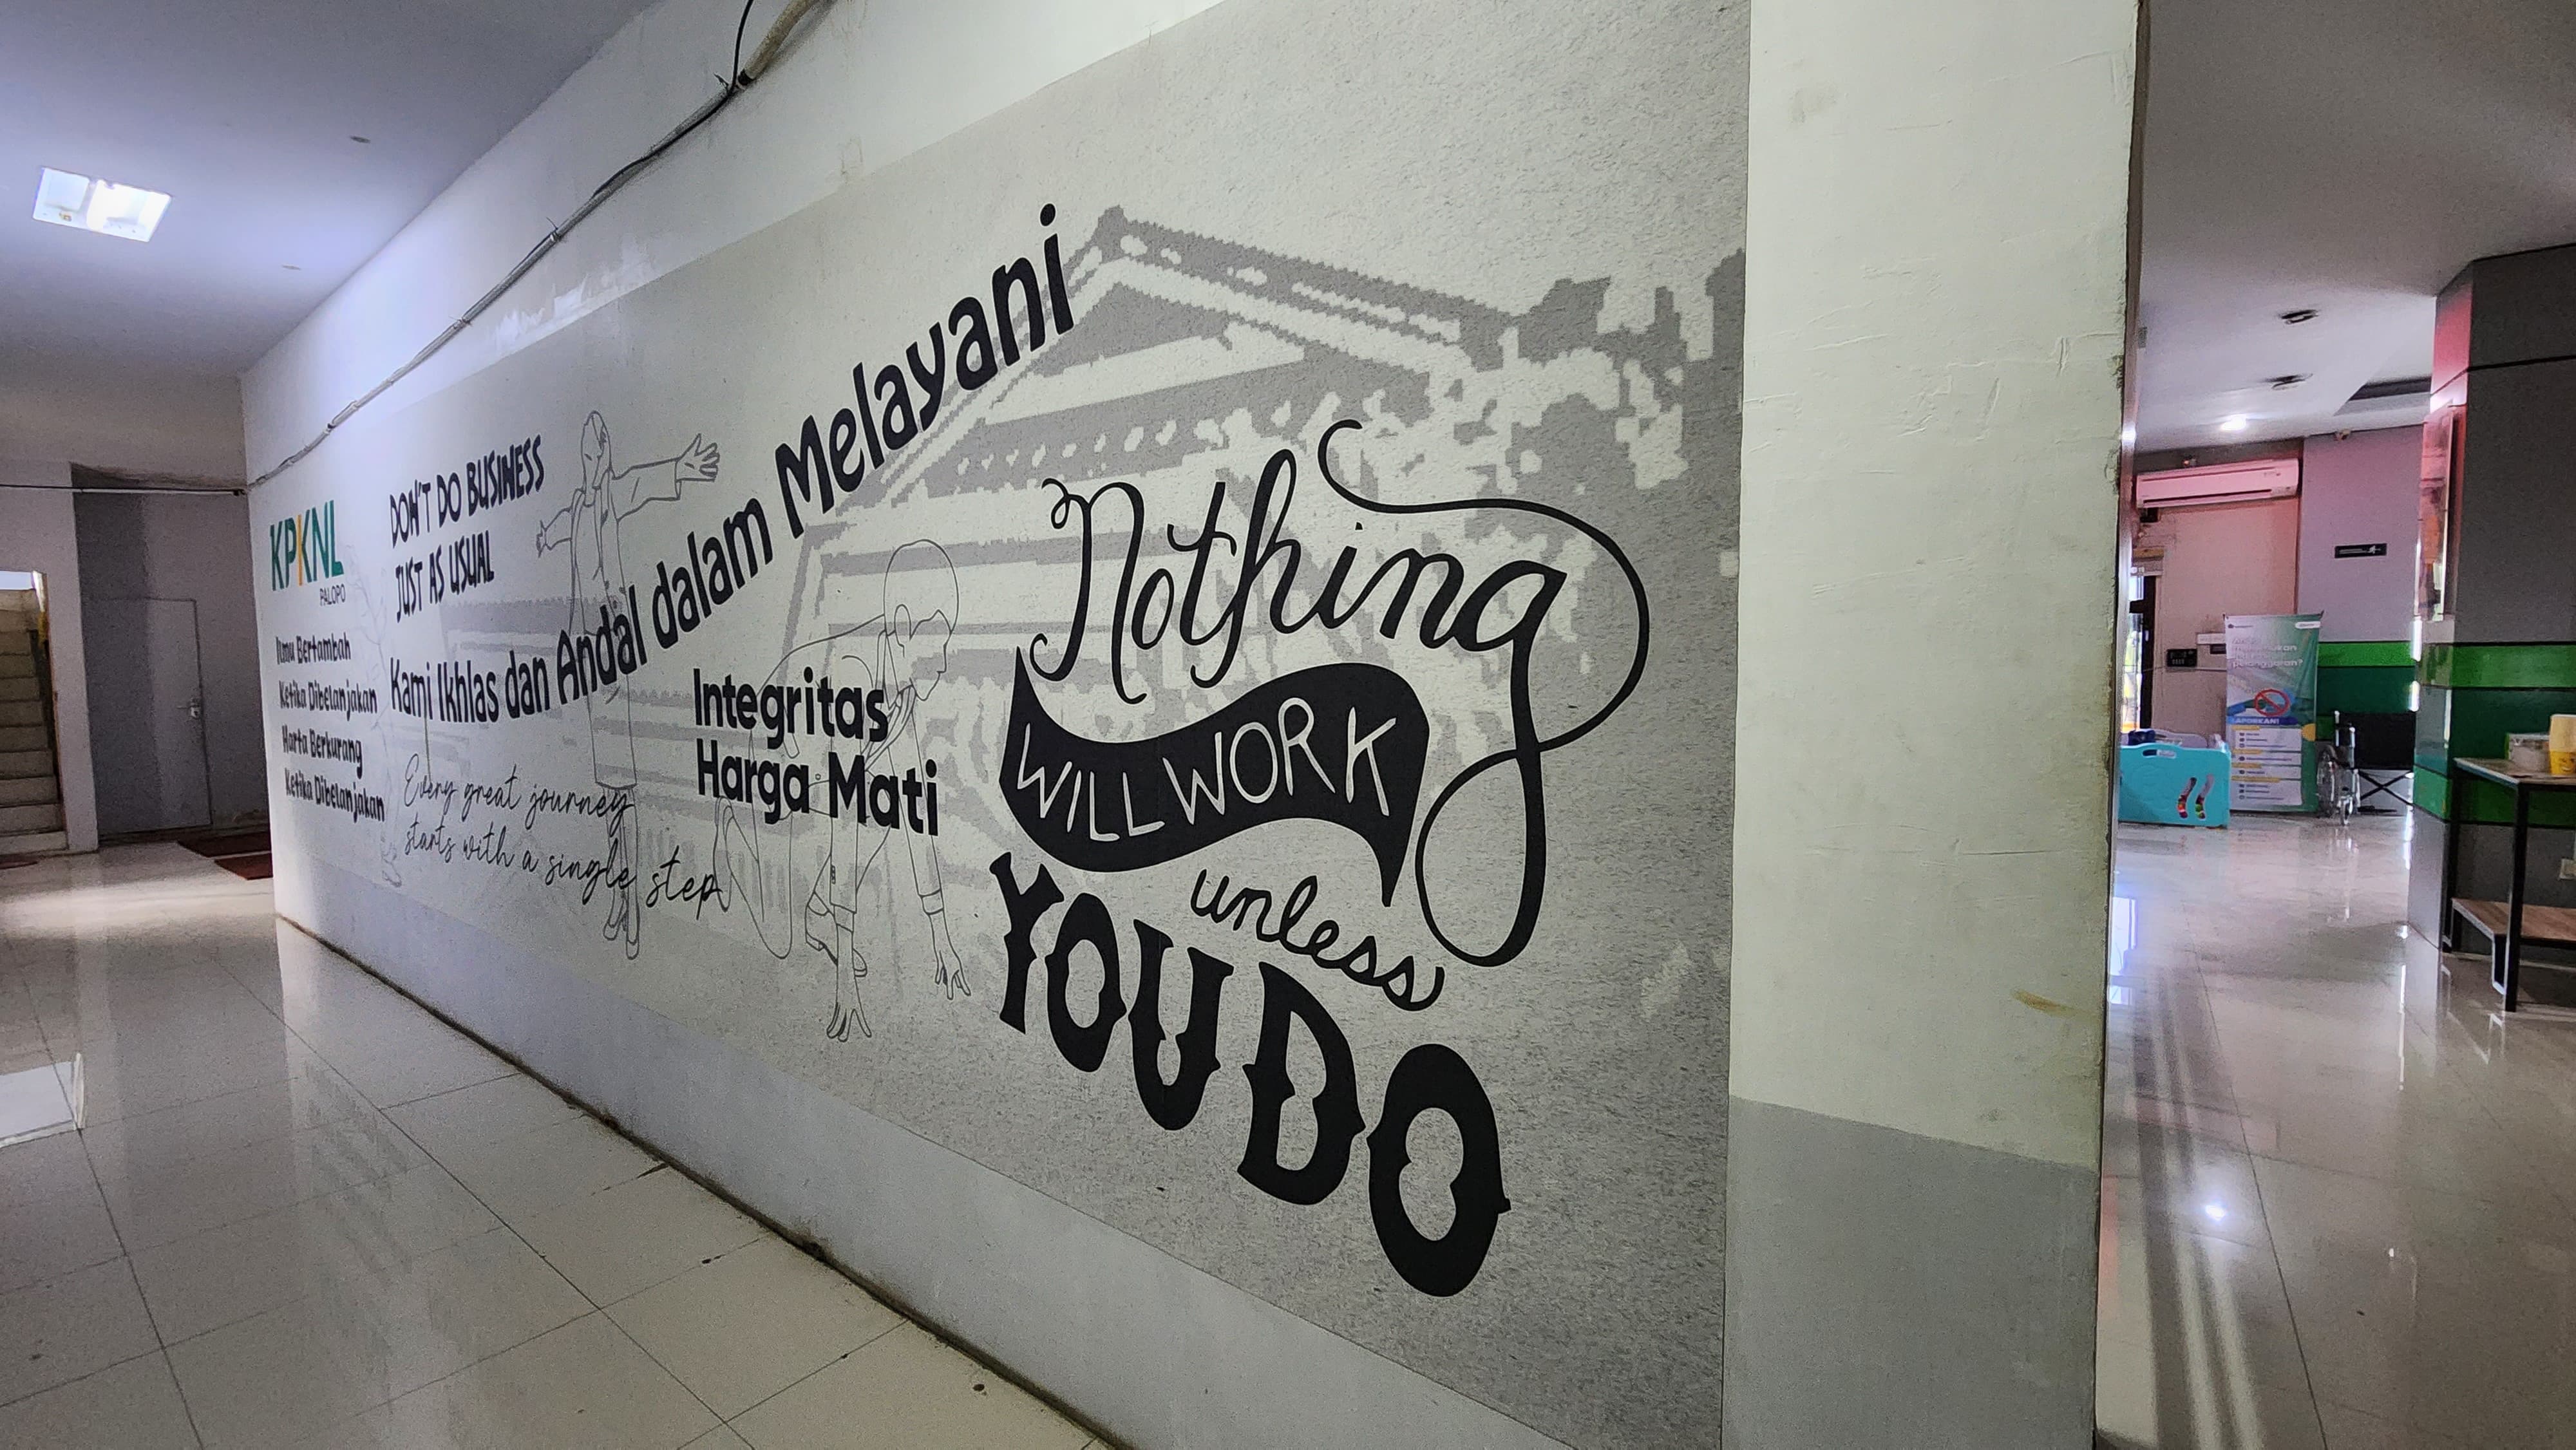 KPKNL
PALOPO
Ilmu Bertambah
Ketika Dibelanjakan
Harta Berkurang
Ketika Dibelanjakan
DON'T DO BUSINESS
JUST AS USUAL
Kami Ikhlas dan Andal dalam Melayani
Every great journey
starts with a single step
Integritas
Harga Mati
Nothing
WILL WORK
unless
YOU DO
pelanggaran?
LAPORKAN!